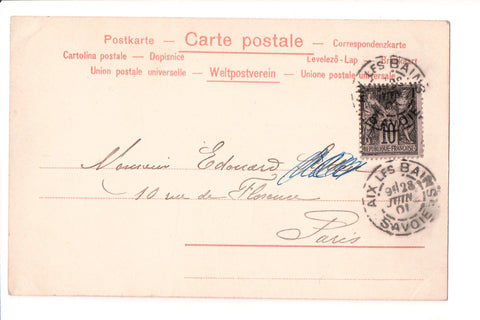 Postkarte - Carte postale - Correspondenzkarte
Cartolina postale - Dopisnice Levelező-Lap -
Union postale universelle - Weltpostverein - Unione postale universale
AIX LES BAINS
10
REPUBLIQUE FRANÇAISE
Monsieur Edouard
10 rue de Florence
Paris
AIX LES BAINS
28
JUIN
01
SAVOIE